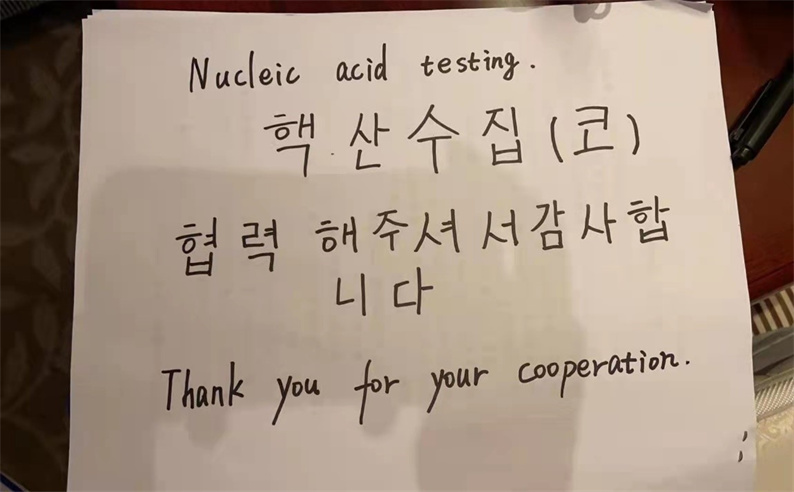 Nucleic acid testing.
핵산수집(코)
협력 해주셔서감사합
니다
Thank you for your cooperation.